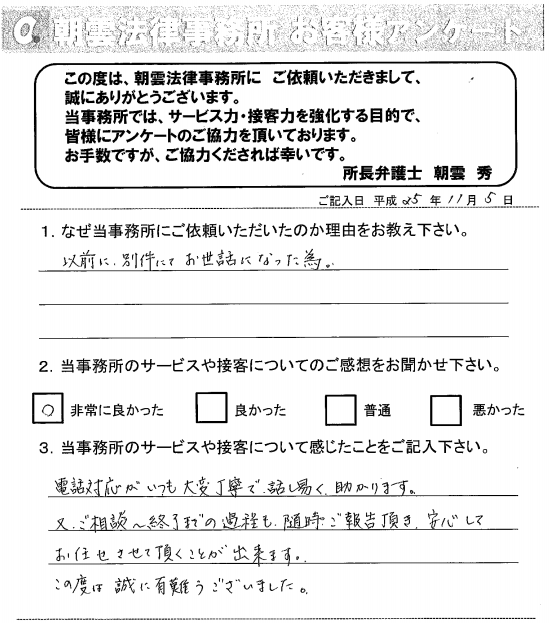 Q. 朝雲法律事務所 お客様アンケート
この度は、朝雲法律事務所に ご依頼いただきまして、
誠にありがとうございます。
当事務所では、サービス力・接客力を強化する目的で、
皆様にアンケートのご協力を頂いております。
お手数ですが、ご協力くだされば幸いです。
所長弁護士 朝雲 秀
ご記入日 平成 25 年 11 月 5 日
1. なぜ当事務所にご依頼いただいたのか理由をお教え下さい。
以前に、別件にて お世話になった為。
2. 当事務所のサービスや接客についてのご感想をお聞かせ下さい。
○ 非常に良かった 良かった 普通 悪かった
3. 当事務所のサービスや接客について感じたことをご記入下さい。
電話対応がいつも大変丁寧で、話し易く、助かります。
又、ご相談〜終了までの過程も、随時ご報告頂き、安心して
お任せさせて頂くことが出来ます。
この度は 誠に有難うございました。